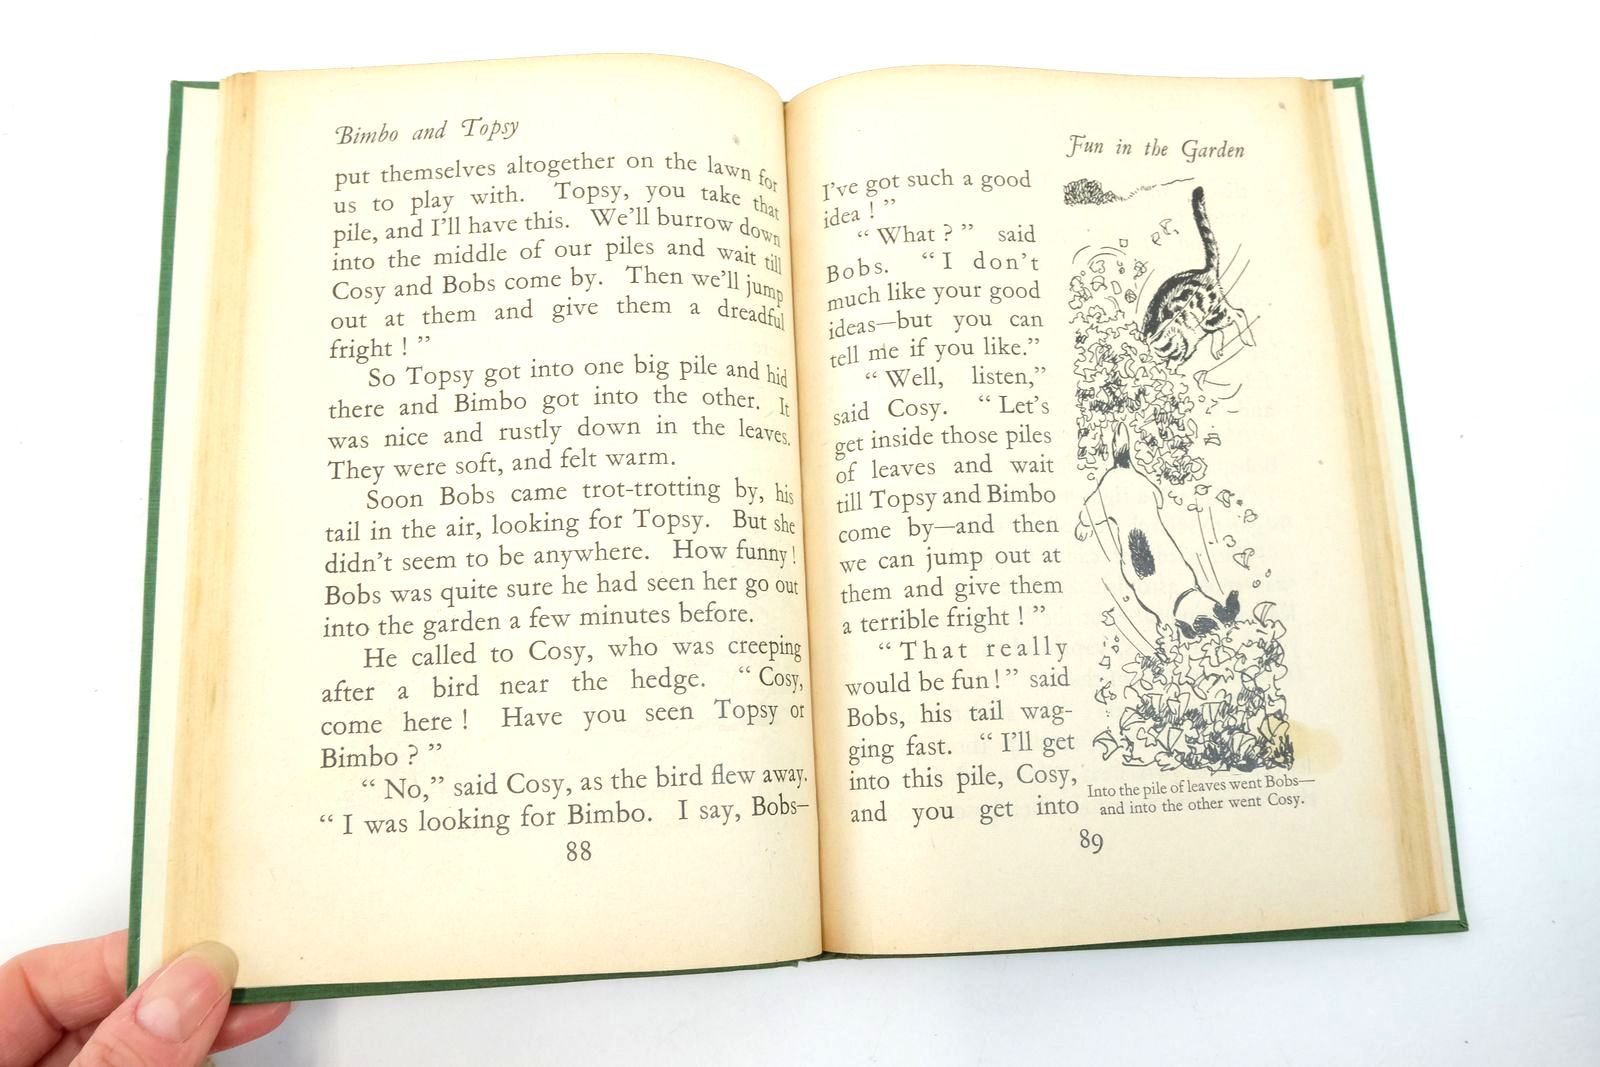 Bimbo and Topsy
put themselves altogether on the lawn for
us to play with. Topsy, you take that
pile, and I'll have this. We'll burrow down
into the middle of our piles and wait till
Cosy and Bobs come by. Then we'll jump
out at them and give them a dreadful
fright ! ”
So Topsy got into one big pile and hid
there and Bimbo got into the other. It
was nice and rustly down in the leaves.
They were soft, and felt warm.
Soon Bobs came trot-trotting by, his
tail in the air, looking for Topsy. But she
didn't seem to be anywhere. How funny !
Bobs was quite sure he had seen her go out
into the garden a few minutes before.
He called to Cosy, who was creeping
after a bird near the hedge. “ Cosy,
come here ! Have you seen Topsy or
Bimbo ? ”
“ No,” said Cosy, as the bird flew away.
“ I was looking for Bimbo. I say, Bobs—
88
Fun in the Garden
I've got such a good
idea ! ”
“ What ? ” said
Bobs. “ I don't
much like your good
ideas—but you can
tell me if you like.”
“ Well, listen,”
said Cosy. “ Let's
get inside those piles
of leaves and wait
till Topsy and Bimbo
come by—and then
we can jump out at
them and give them
a terrible fright ! ”
“ That really
would be fun ! ” said
Bobs, his tail wag-
ging fast. “ I'll get
into this pile, Cosy,
and you get into
Into the pile of leaves went Bobs—
and into the other went Cosy.
89